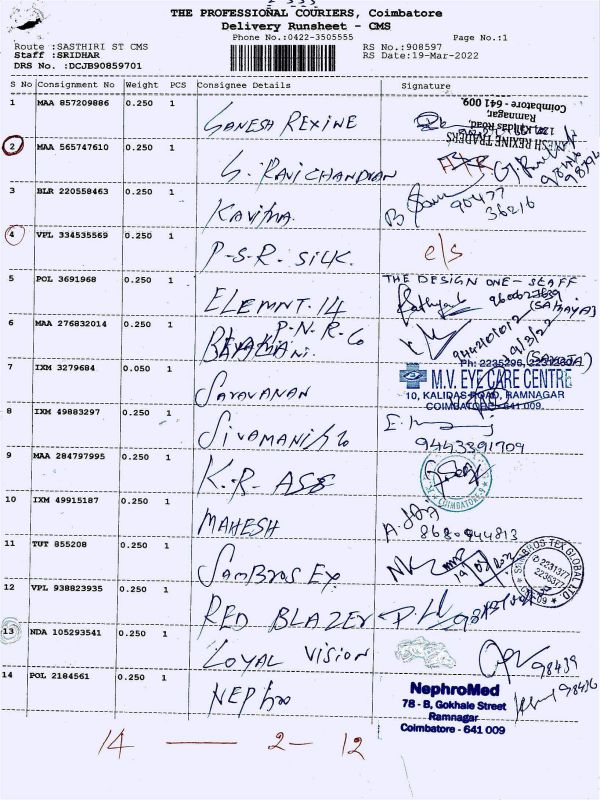 THE PROFESSIONAL COURIERS, Coimbatore
Delivery Runsheet - CMS
Phone No.:0422-3505555
Page No.:1
Route :SASTHIRI ST CMS
RS No.:908597
Staff :SRIDHAR
RS Date:19-Mar-2022
DRS No :DCJB90859701
S No Consignment No Weight PCS Consignee Details Signature
1 MAA 857209886 0.250 1 GANESH REXINE
GANESH REXINE TRADERS
Kalidas Road,
Ramnagar,
Coimbatore - 641 009
2 MAA 565747610 0.250 1 G. RAVICHANDRAN
3 BLR 220558463 0.250 1 KAVITHA
90477
36216
4 VPL 334535569 0.250 1 P-S-R- SILK. e/s
5 POL 3691968 0.250 1 ELEMNT. 14
THE DESIGN ONE - STAFF
6 MAA 276832014 0.250 1 P-N-R- Co
19/3/22
Ph: 2235296,
7 IXM 3279684 0.050 1 SARAVANAN
M.V. EYE CARE CENTRE
10, KALIDAS ROAD, RAMNAGAR
COIMBATORE - 641 009.
8 IXM 49883297 0.250 1
9443391709
9 MAA 284797995 0.250 1 K.R. ASE
COIMBATORE-9
10 IXM 49915187 0.250 1 MAHESH
8680944813
11 TUT 855208 0.250 1 SAMBROS Ex
SAMBROS TEX GLOBAL LTD.
2231377
12 VPL 938823935 0.250 1 RED BLAZER
13 NDA 105293541 0.250 1 LOYAL VISION
98439
14 POL 2184561 0.250 1 NEPHRO
98436
NephroMed
78 - B, Gokhale Street
Ramnagar
Coimbatore - 641 009
14 — 2 — 12